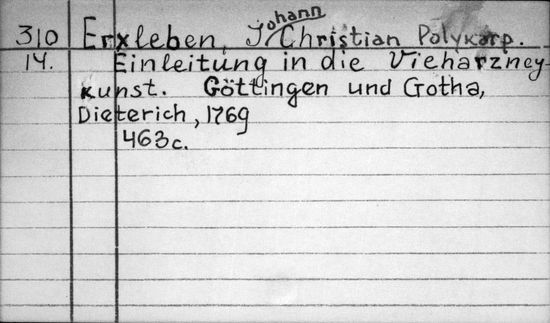 310 Erxleben, Johann Christian Polykarp.
14. Einleitung in die Vieharzney-
kunst. Göttingen und Gotha,
Dieterich, 1769
463c.